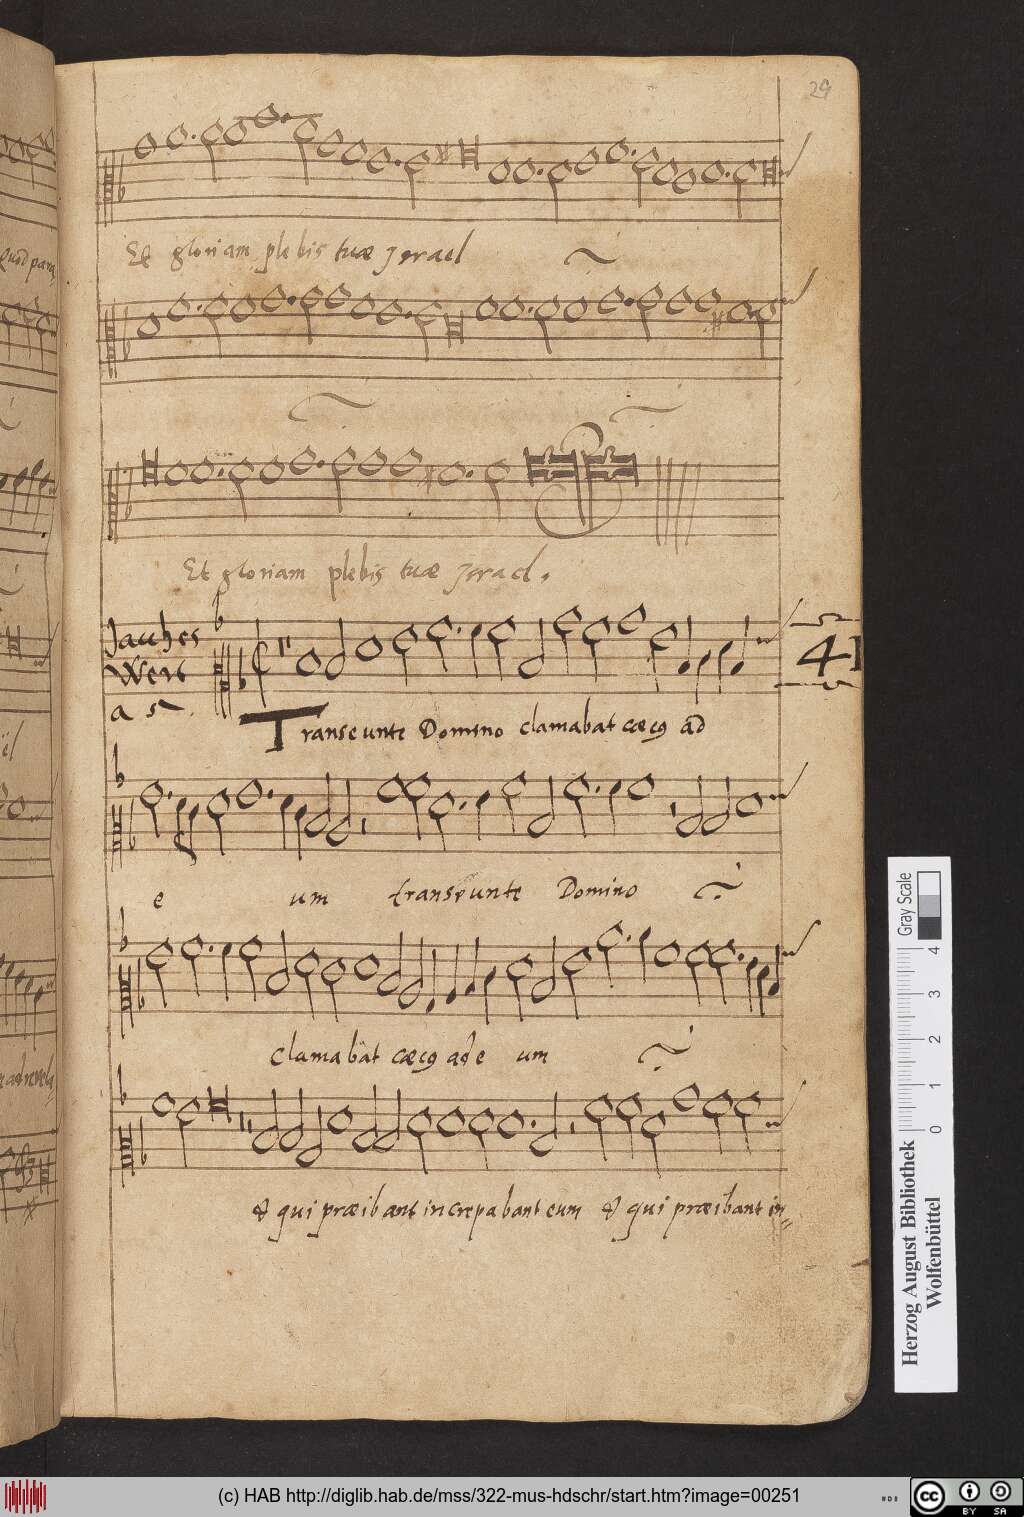 29
Et gloriam plebis tuæ jsrael
Et gloriam plebis tuæ jsrael.
Jaches
Wert
a 5
4
Transeunte Domino clamabat cæcg ad
e um transeunte Domino
clamabat cæcg ad e um
& qui præibant increpabant eum & qui præibant in=
Gray Scale
0 1 2 3 4
Herzog August Bibliothek
Wolfenbüttel
(c) HAB http://diglib.hab.de/mss/322-mus-hdschr/start.htm?image=00251
cc BY SA